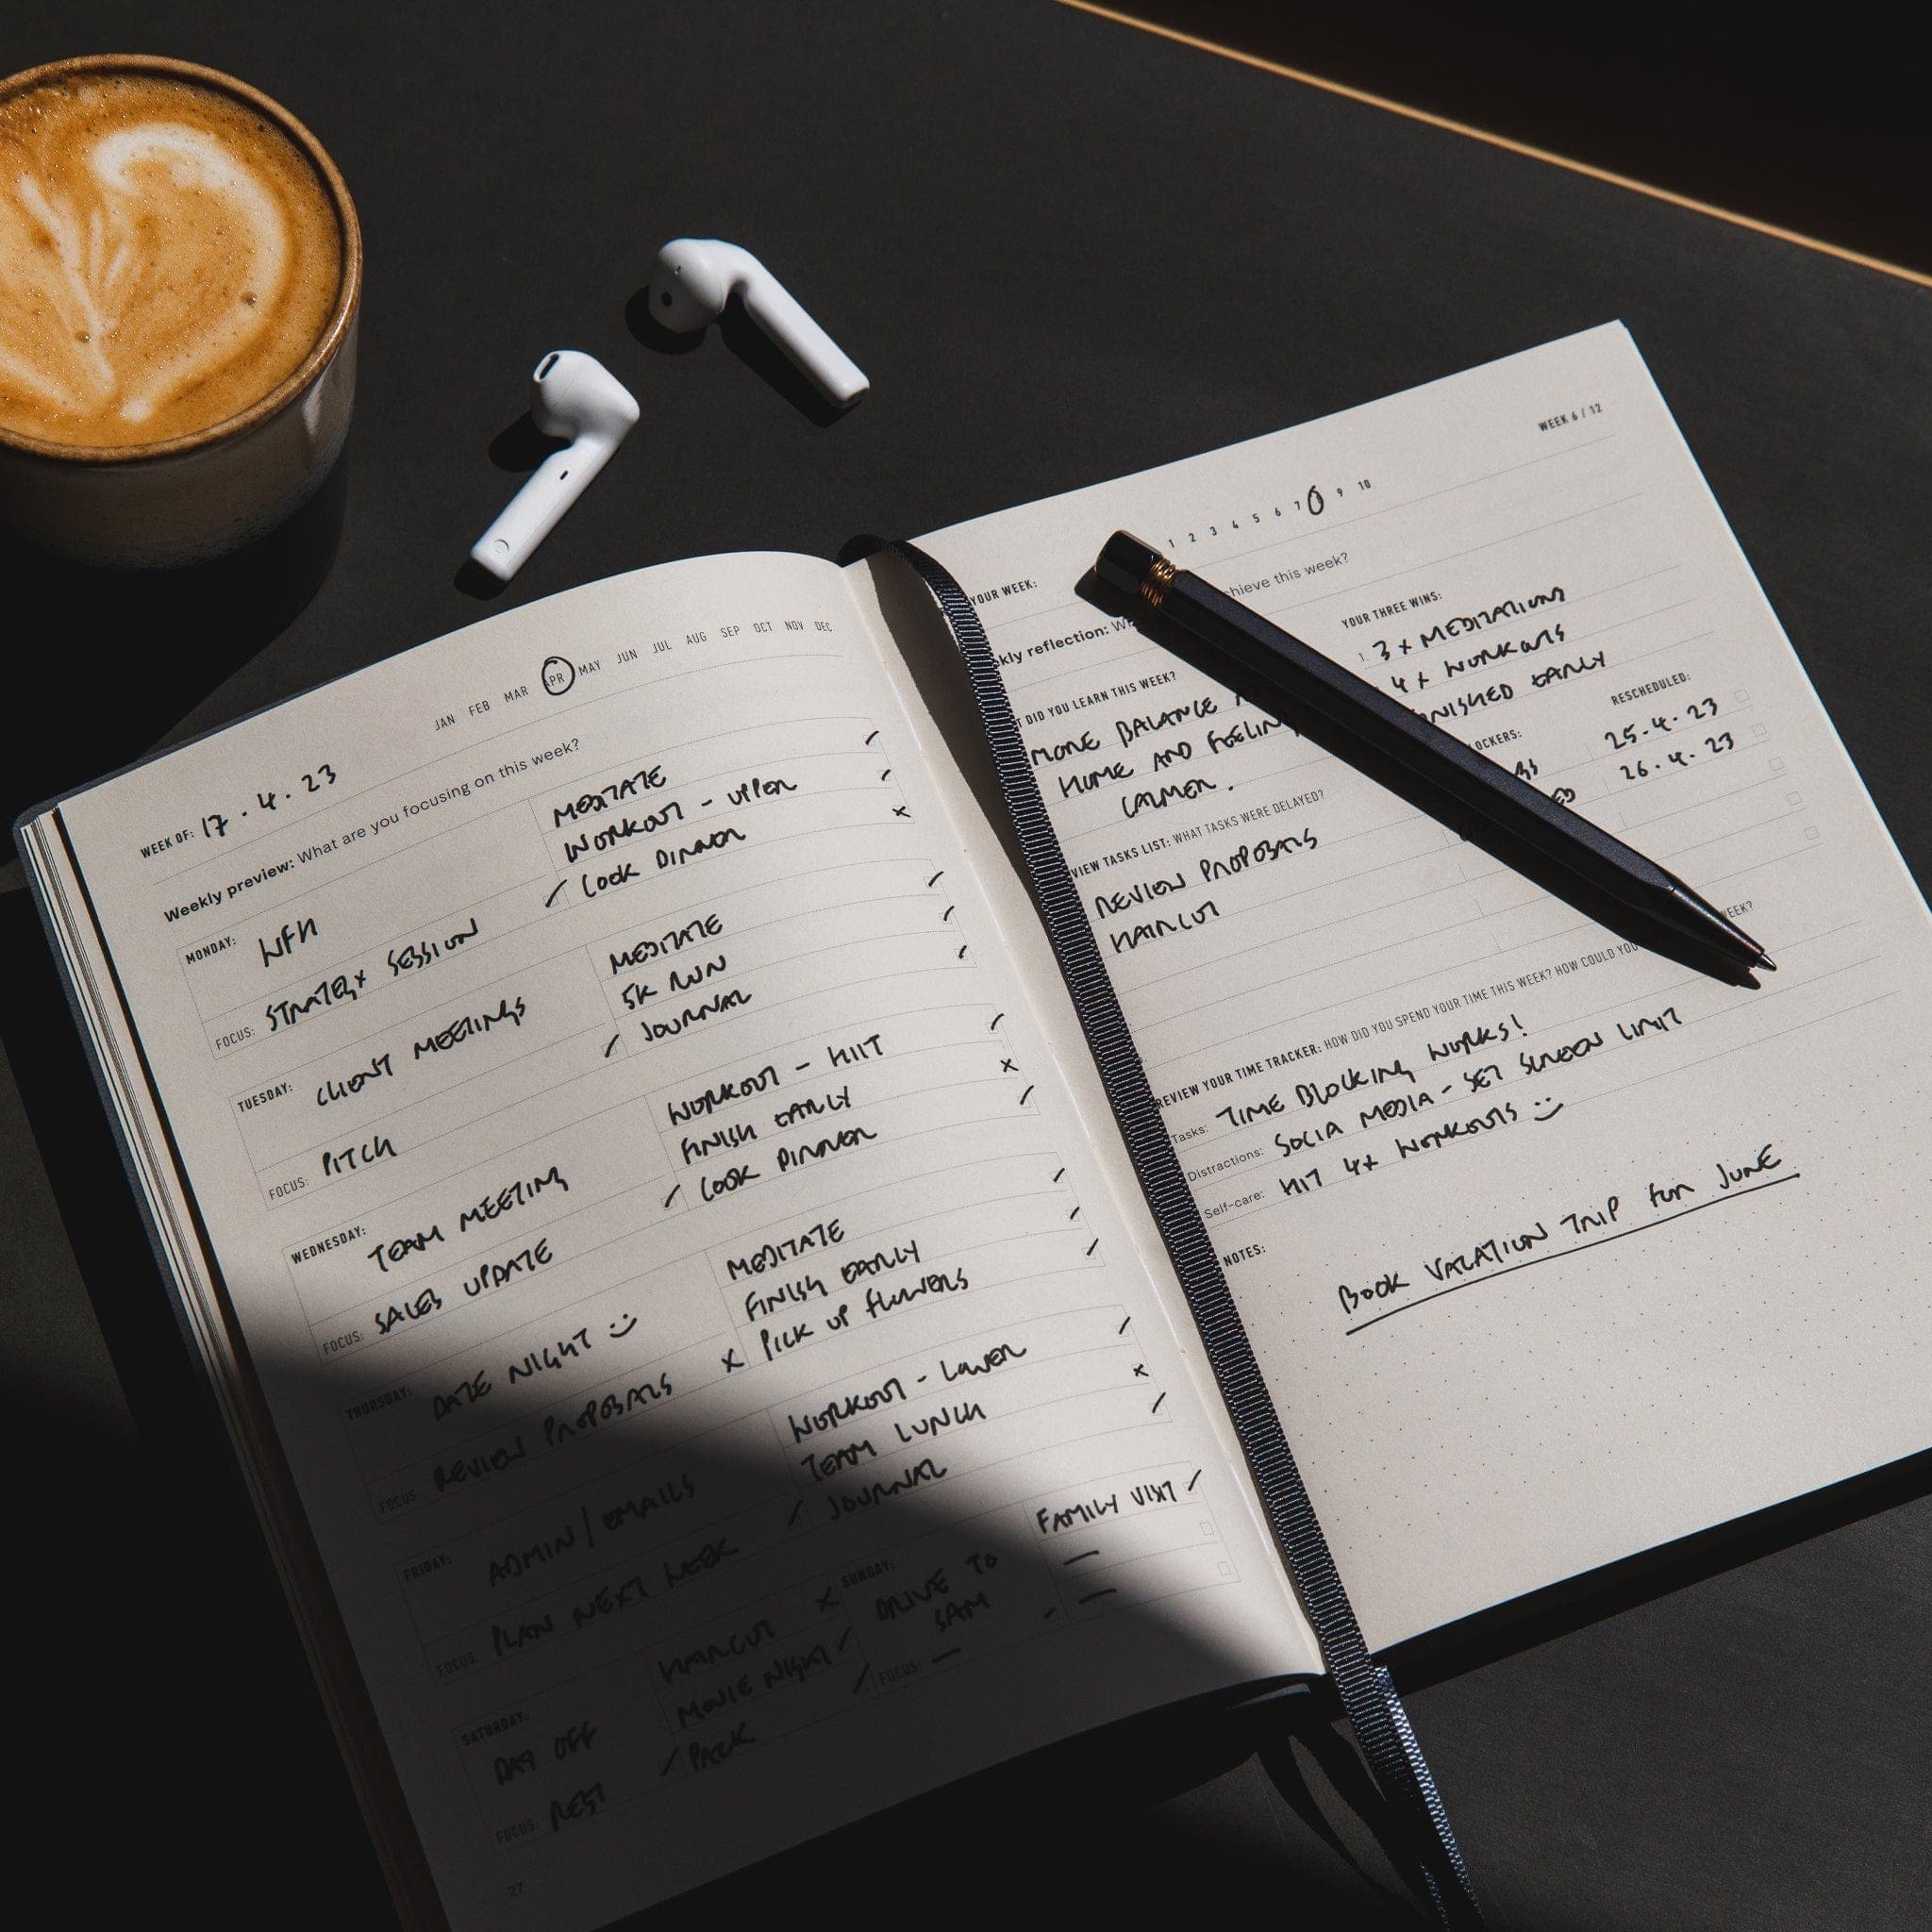 JAN FEB MAR APR MAY JUN JUL AUG SEP OCT NOV DEC
WEEK OF: 17.4.23
Weekly preview: What are you focusing on this week?
MONDAY: WFH
FOCUS: STRATEGY SESSION
MEDITATE
WORKOUT - UPPER
COOK DINNER
TUESDAY: CLIENT MEETINGS
FOCUS: PITCH
MEDITATE
5K RUN
JOURNAL
WEDNESDAY: TEAM MEETING
FOCUS: SALES UPDATE
WORKOUT - HIIT
FINISH EARLY
COOK DINNER
THURSDAY: DATE NIGHT
FOCUS: REVIEW PROPOSALS
MEDITATE
FINISH EARLY
PICK UP FLOWERS
FRIDAY: ADMIN / EMAILS
FOCUS: PLAN NEXT WEEK
WORKOUT - LOWER
TEAM LUNCH
JOURNAL
SATURDAY: DAY OFF
FOCUS: REST
HAIRCUT
MOVIE NIGHT
PACK
SUNDAY: DRIVE TO
SAM
FOCUS: —
FAMILY VISIT
—
—
27
WEEK 6 / 12
YOUR WEEK: 1 2 3 4 5 6 7 9 10
kly reflection: chieve this week?
DID YOU LEARN THIS WEEK?
MORE BALANCE
HOME AND FEELING
CALMER.
YOUR THREE WINS:
1. 3 x MEDITATIONS
4 x WORKOUTS
NISHED EARLY
VIEW TASKS LIST: WHAT TASKS WERE DELAYED?
REVIEW PROPOSALS
HAIRCUT
LOCKERS:
RESCHEDULED:
25.4.23
26.4.23
REVIEW YOUR TIME TRACKER: HOW DID YOU SPEND YOUR TIME THIS WEEK? HOW COULD YOU WEEK?
Tasks: TIME BLOCKING WORKS!
Distractions: SOCIA MEDIA - SET SCREEN LIMIT
Self-care: HIT 4x WORKOUTS
NOTES:
BOOK VACATION TRIP FOR JUNE